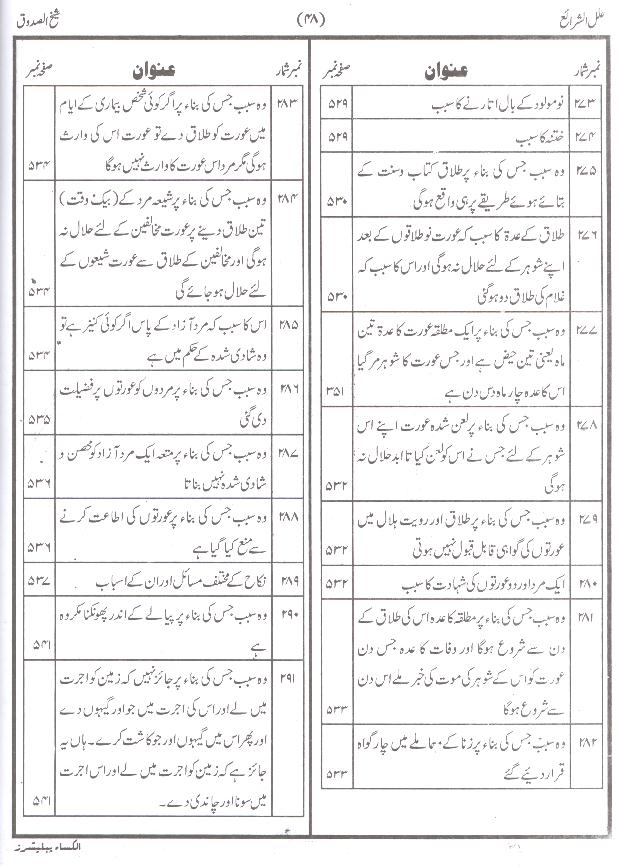 علل الشرائع (۴۸) شیخ الصدوق
نمبر شمار عنوان صفحہ نمبر
۲۷۳ نومولود کے بال اتارنے کا سبب ۵۲۹
۲۷۴ ختنہ کا سبب ۵۲۹
۲۷۵ وہ سبب جس کی بناء پر طلاق کتاب وسنت کے
بتائے ہوئے طریقے پر ہی واقع ہوگی ۵۳۰
۲۷۶ طلاق کے عدۃ کا سبب کہ عورت نو طلاقوں کے بعد
اپنے شوہر کے لئے حلال نہ ہوگی اور اس کا سبب کہ
غلام کی طلاق دو ہوگئی ۵۳۰
۲۷۷ وہ سبب جس کی بناء پر ایک مطلقہ عورت کا عدۃ تین
ماہ یعنی تین حیض ہے اور جس عورت کا شوہر مر گیا
اس کا عدہ چار ماہ دس دن ہے ۳۵۱
۲۷۸ وہ سبب جس کی بناء پر لعن شدہ عورت اپنے اس
شوہر کے لئے جس نے اس کو لعن کیا تا ابد حلال نہ
ہوگی ۵۳۲
۲۷۹ وہ سبب جس کی بناء پر طلاق اور رویت ہلال میں
عورتوں کی گواہی قابل قبول نہیں ہوتی ۵۳۲
۲۸۰ ایک مرد اور دو عورتوں کی شہادت کا سبب ۵۳۲
۲۸۱ وہ سبب جس کی بناء پر مطلقہ کا عدہ اس کی طلاق کے
دن سے شروع ہوگا اور وفات کا عدہ جس دن
عورت کو اس کے شوہر کی موت کی خبر ملے اس دن
سے شروع ہوگا ۵۳۳
۲۸۲ وہ سبب جس کی بناء پر زنا کے معاملے میں چار گواہ
قرار دیئے گئے ۵۳۳
نمبر شمار عنوان صفحہ نمبر
۲۸۳ وہ سبب جس کی بناء پر اگر کوئی شخص بیماری کے ایام
میں عورت کو طلاق دے تو عورت اس کی وارث
ہوگی مگر مرد اس عورت کا وارث نہیں ہوگا ۵۳۴
۲۸۴ وہ سبب جس کی بناء پر شیعہ مرد کے (بیک وقت)
تین طلاق دینے پر عورت مخالفین کے لئے حلال نہ
ہوگی اور مخالفین کے طلاق سے عورت شیعوں کے
لئے حلال ہو جائے گی ۵۳۴
۲۸۵ اس کا سبب کہ مرد آزاد کے پاس اگر کوئی کنیز ہے تو
وہ شادی شدہ کے حکم میں ہے ۵۳۴
۲۸۶ وہ سبب جس کی بناء پر مردوں کو عورتوں پر فضیلت
دی گئی ۵۳۵
۲۸۷ وہ سبب جس کی بناء پر متعہ ایک مرد آزاد کو محصن و
شادی شدہ نہیں بناتا ۵۳۶
۲۸۸ وہ سبب جس کی بناء پر عورتوں کی اطاعت کرنے
سے منع کیا گیا ہے ۵۳۶
۲۸۹ نکاح کے مختلف مسائل اور ان کے اسباب ۵۳۷
۲۹۰ وہ سبب جس کی بناء پر پیالے کے اندر پھونکنا مکروہ
ہے ۵۴۱
۲۹۱ وہ سبب جس کی بناء پر جائز نہیں کہ زمین کو اجرت
میں لے اور اس کی اجرت میں جو اور گیہوں دے
اور پھر اس میں گیہوں اور جو کاشت کرے۔ ہاں یہ
جائز ہے کہ زمین کو اجرت میں لے اور اس اجرت
میں سونا اور چاندی دے۔ ۵۴۱
الکساء پبلیشرز